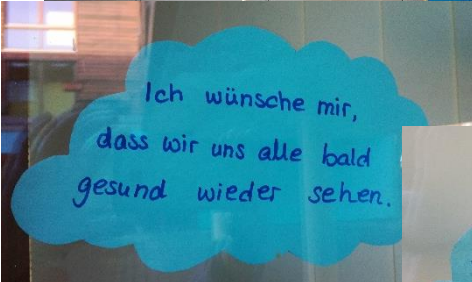 Ich wünsche mir,
dass wir uns alle bald
gesund wieder sehen.